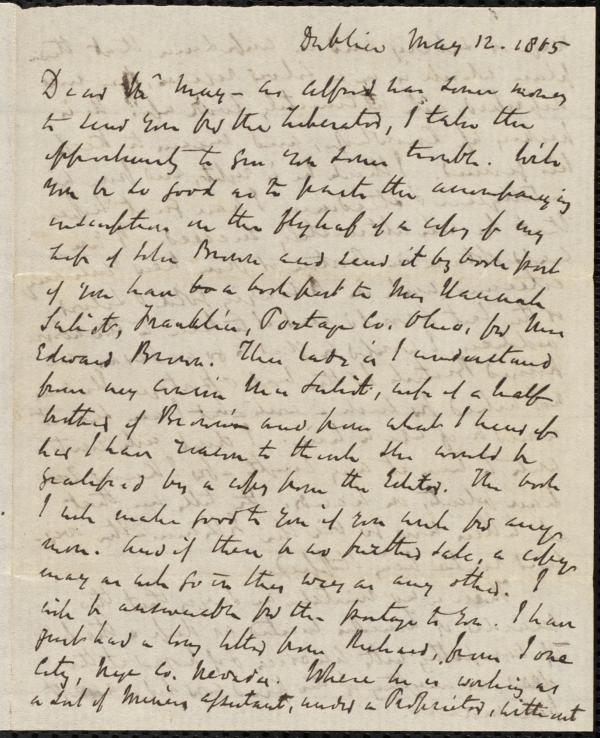 Dublin May 12. 1865
Dear Mr May - as Alfred has some money
to send you for the Liberator, I take the
opportunity to give you some trouble. Will
you be so good as to paste the accompanying
inscription on the flyleaf of a copy of my
Life of John Brown and send it by book post
if you have a book post to Miss Hannah
Franklin, Portage Co. Ohio, for Mrs
Edward Brown. This lady is I understand
from my cousin Mrs wife of a half
brother of Brown's and from what I hear of
her I have reason to think she would be
gratified by a copy from the Editor. The book
I will make good to you if you ask for any
more. And if there be no further sale, a copy
may as well go in this way as any other. I
will be answerable for the postage to you. I have
just had a long letter from Richard, from Ione
City, Nye Co. Nevada. Where he is working as
a sort of Mining assistant, under a Proprietor, without